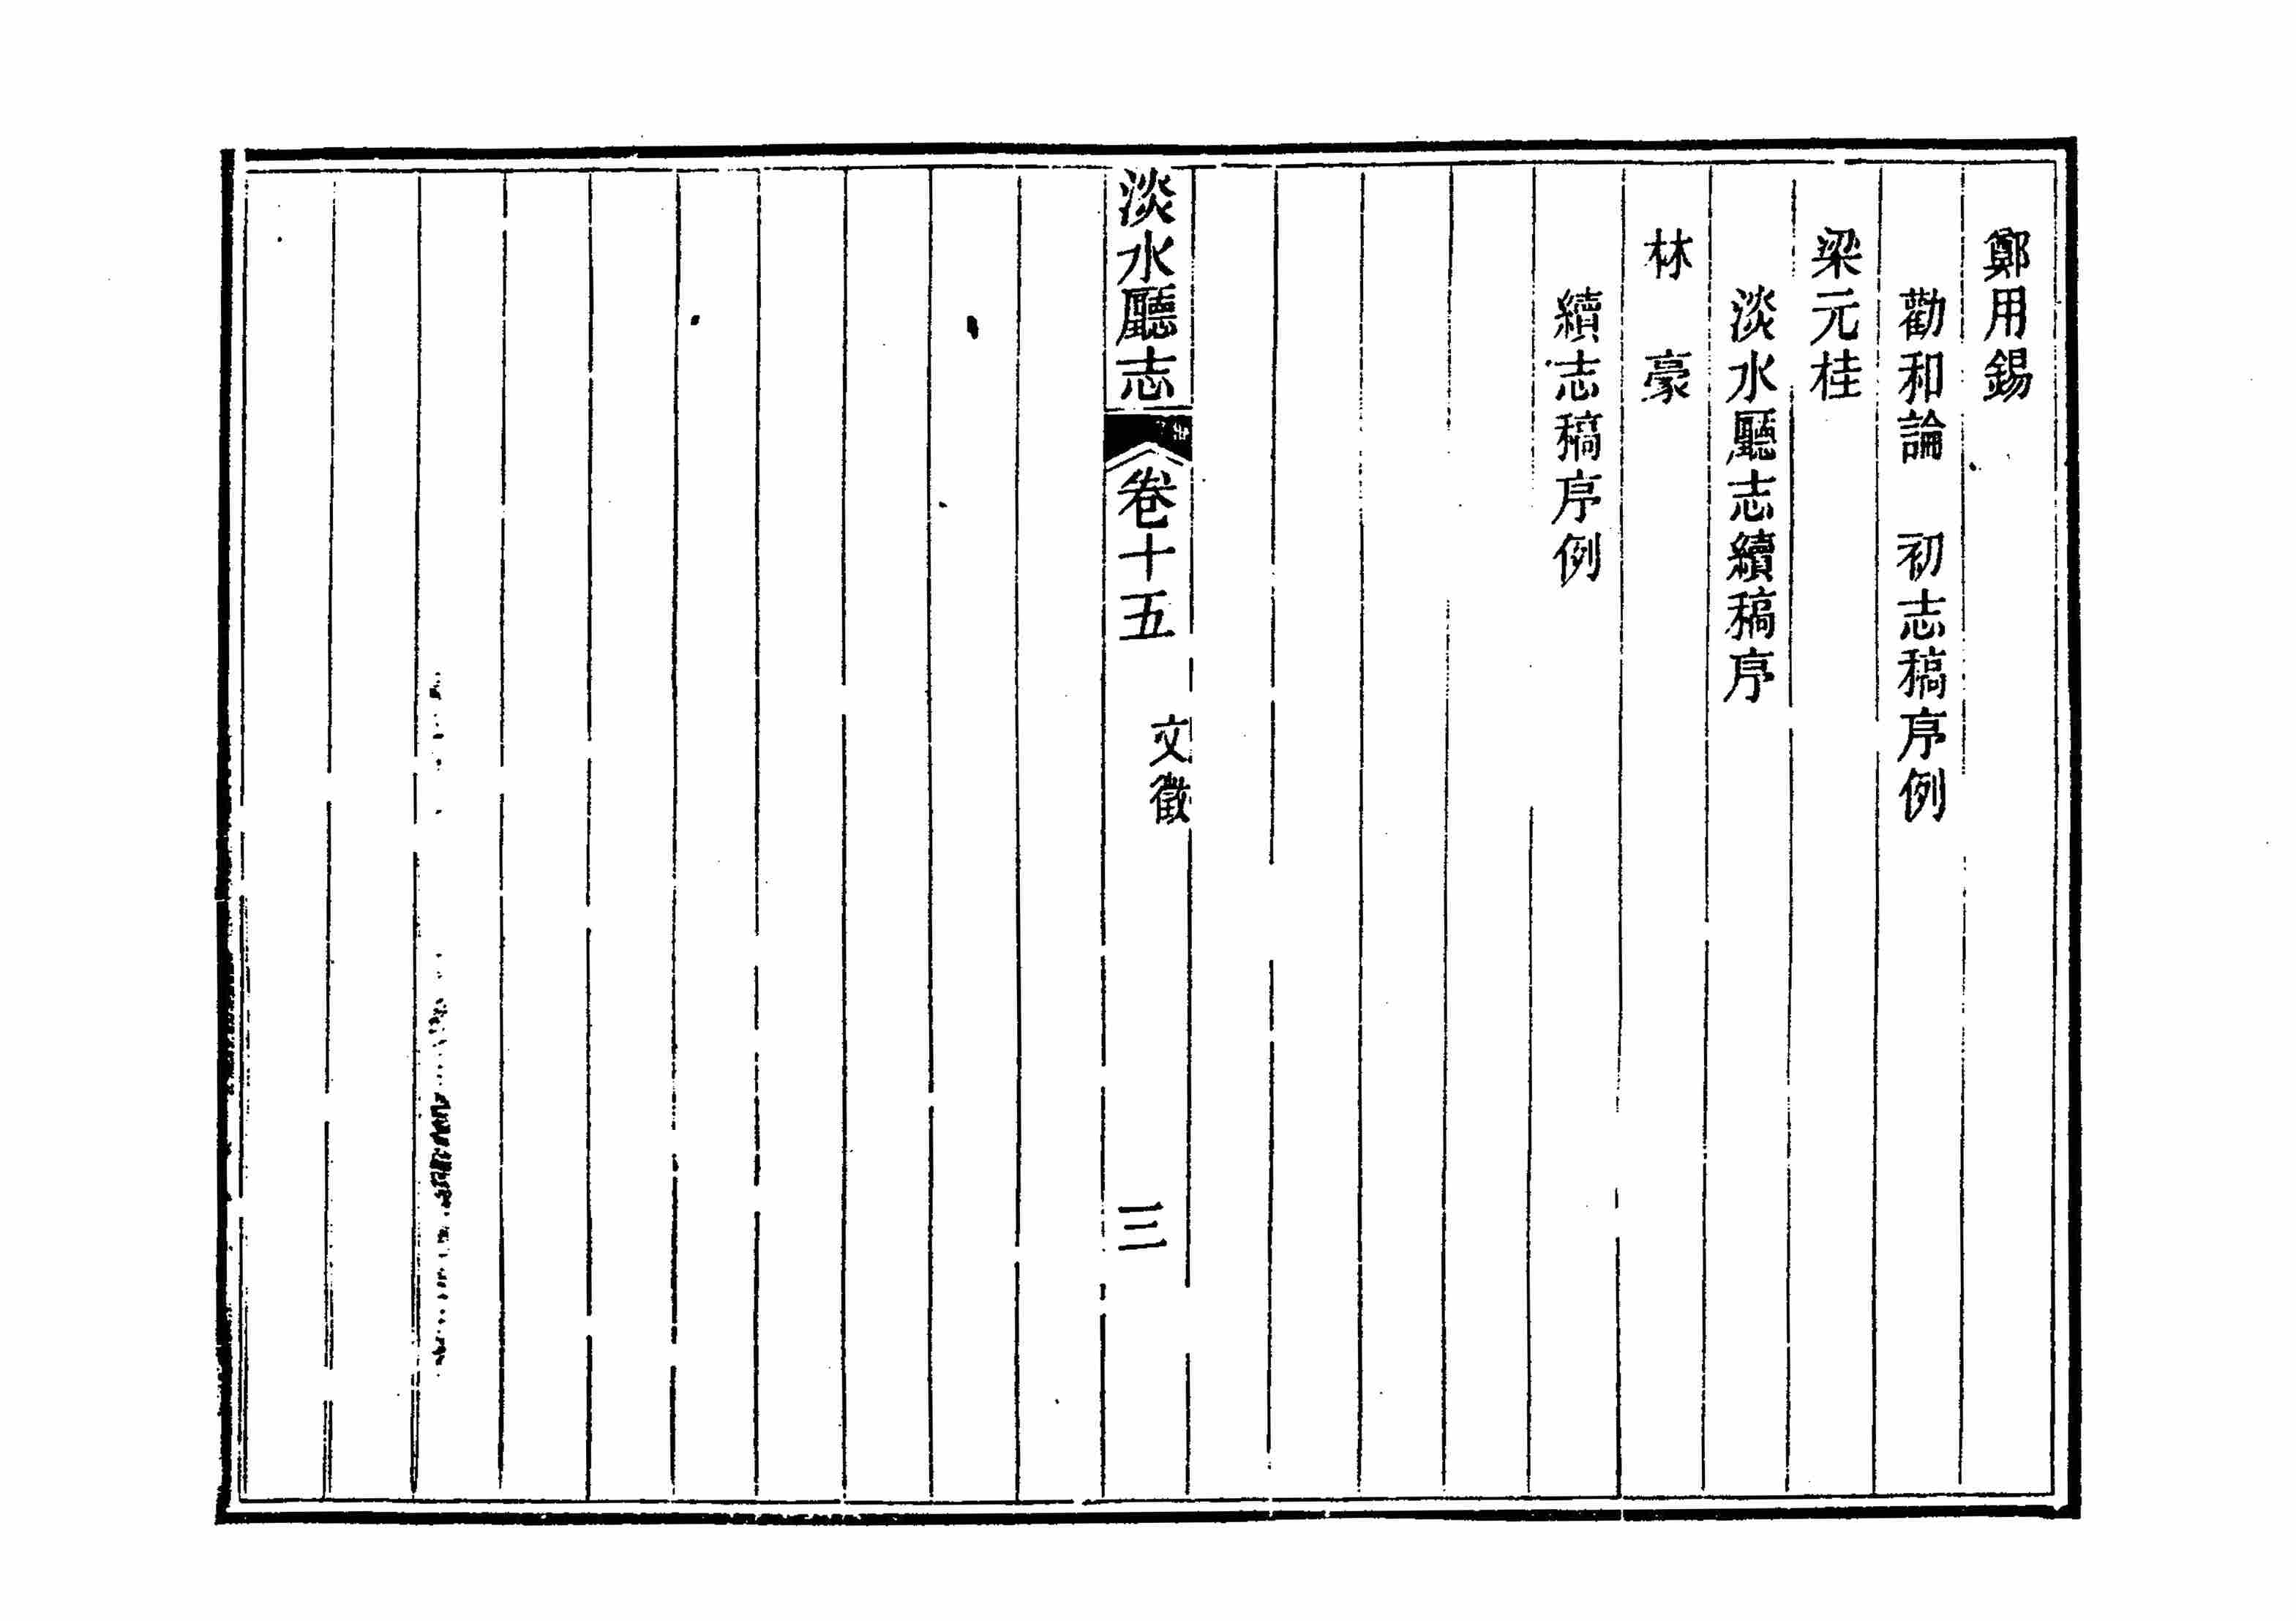 鄭用錫
勸和論　初志稿序例
梁元桂
淡水廳志續稿序
林　豪
續志稿序例
淡水廳志　卷十五　文徵　三